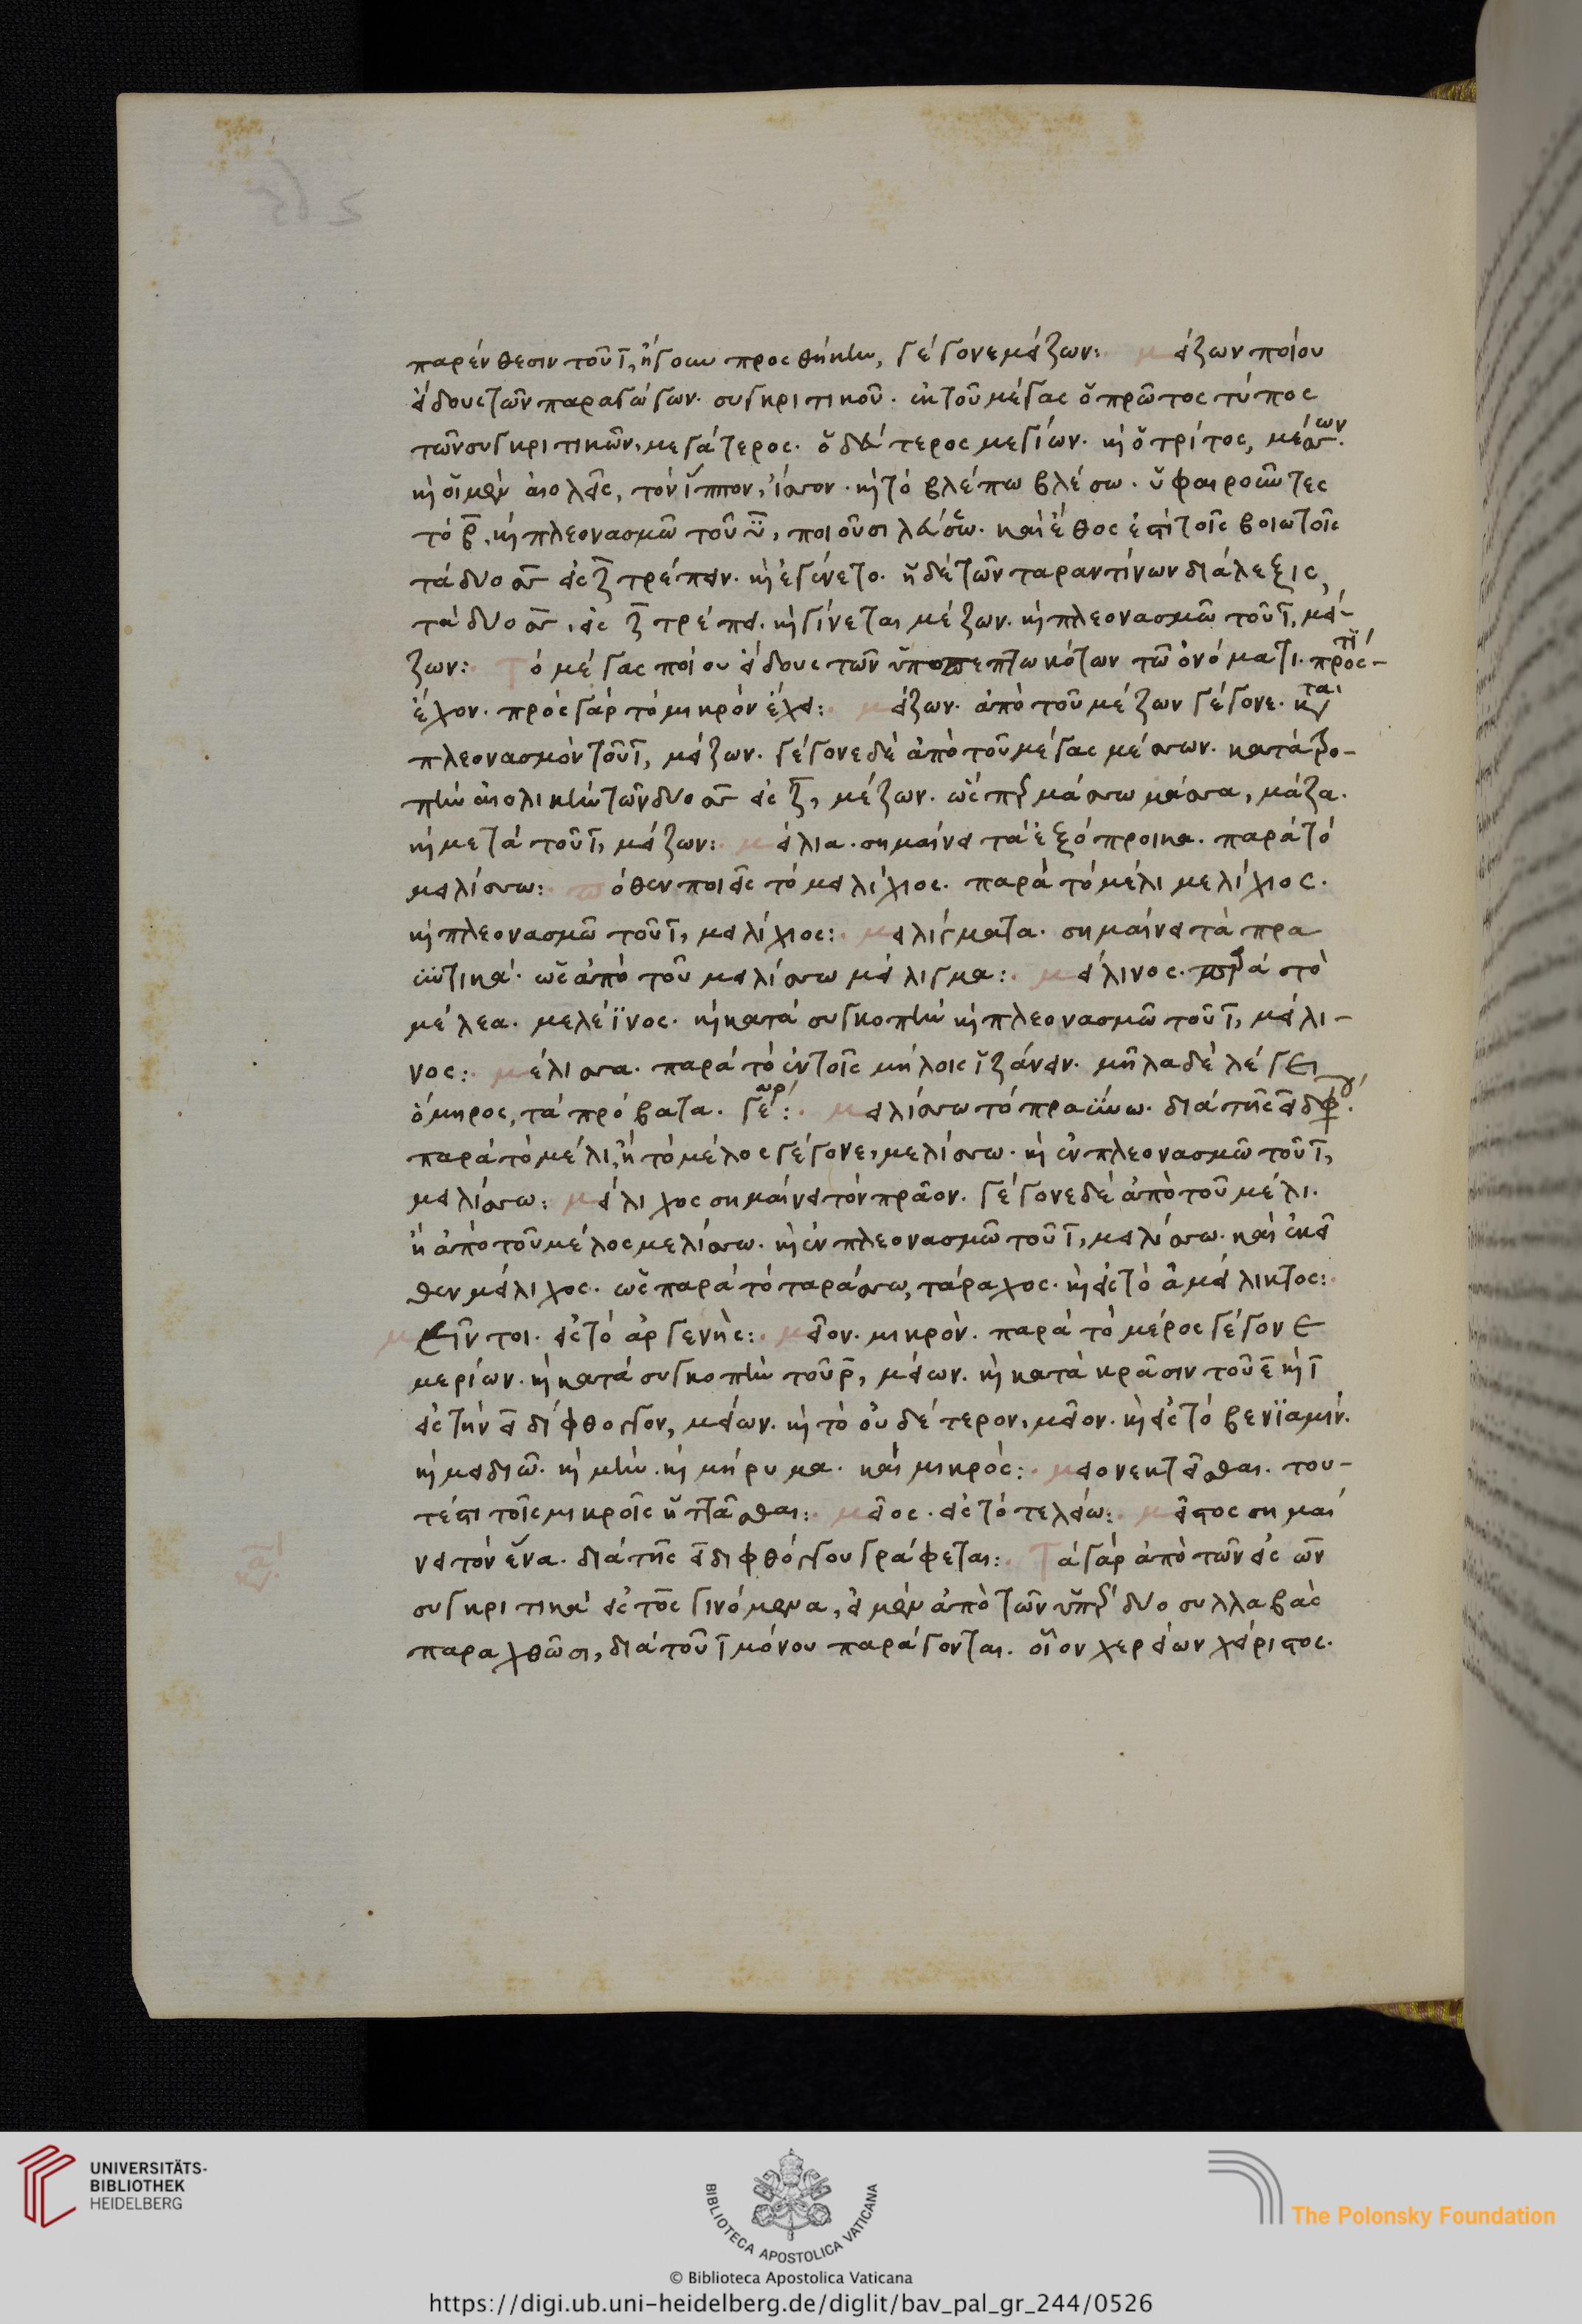 παρένθεσιν τοῦ ῑ, ἤγουν προσθήκην, γέγονε μείζων: μείζων ποίου
εἴδους τῶν παραγώγων. συγκριτικοῦ. ἐκ τοῦ μέγας ὁ πρῶτος τύπος
τῶν συγκριτικῶν, μεγάτερος. ὁ δεύτερος μεγίων. κὶ ὁ τρίτος, μέσσων.
κὶ οἱ μὲν αἰολεῖς, τὸν ἵππον, ἴσσον. κὶ τὸ βλέπω βλέσω. ὑφαιροῦντες
τὸ β̄, κὶ πλεονασμῶ τοῦ ῡ, ποιοῦσι λεύσσω. καὶ ἔθος ἐστὶ τοῖς βοιωτοῖς
τὰ δυο σσ εἰς ζ̄ τρέπειν. κὶ ἐγένετο. ἡ δὲ τῶν ταραντίνων διάλεξις,
τὰ δυο σσ, εἰς ζ̄ τρέπει. κὶ γίνεται μέζων. κὶ πλεονασμῶ τοῦ ῑ, μεί-
ζων: Τὸ μέγας ποίου εἴδους τῶν ὑποπεπτωκότων τῶ ὀνόματι. πρὸς τί
ἔχον. πρὸς γὰρ τὸ μικρὸν ἔχει: μείζων. ἀπὸ τοῦ μέζων γέγονε. κατὰ
πλεονασμὸν τοῦ ῑ, μείζων. γέγονε δὲ ἀπὸ τοῦ μέγας μέσσων. κατὰ τρο-
πὴν αἰολικὴν τῶν δυο σσ εἰς ζ̄, μέζων. ὥσπερ μάσσω μάσσα, μάζα.
κὶ μετὰ τοῦ ῑ, μείζων: μείλια. σημαίνει τὰ ἐξόπροικα. παρὰ τὸ
μειλίσσω: πόθεν ποιεῖς τὸ μειλίχιος. παρὰ τὸ μέλι μελίχιος.
κὶ πλεονασμῶ τοῦ ῑ, μειλίχιος: μειλίγματα. σημαίνει τὰ πρα
ϋντικά. ὡς ἀπὸ τοῦ μειλίσσω μείλιγμα: μείλινος. παρὰ τὸ
μέλεα. μελέϊνος. κὶ κατὰ συγκοπὴν κὶ πλεονασμῶ τοῦ ῑ, μείλι-
νος: μέλισσα. παρὰ τὸ ἐν τοῖς μήλοις ἱζάνειν. μῆλα δὲ λέγει
ὅμηρος, τὰ πρόβατα. γεωρ: μειλίσσω τὸ πραΰνω. διὰ τῆς ει διφ.
παρὰ τὸ μέλι, ἢ τὸ μέλος γέγονε, μελίσσω. κὶ ἐν πλεονασμῶ τοῦ ῑ,
μειλίσσω: μείλιχος σημαίνει τὸν πρᾶον. γέγονε δὲ ἀπὸ τοῦ μέλι.
ἢ ἀπὸ τοῦ μέλος μελίσσω. κὶ ἐν πλεονασμῶ τοῦ ῑ, μειλίσσω. καὶ ἐκεῖ
θεν μείλιχος. ὡς παρὰ τὸ ταράσσω, τάραχος. κὶ εἰς τὸ ἀμείλικτος:
μεῖν τοι. εἰς τὸ ἀργενής: μεῖον. μικρόν. παρὰ τὸ μέρος γέγονε
μερίων. κὶ κατὰ συγκοπὴν τοῦ ρ̄, μείων. κὶ κατὰ κρᾶσιν τοῦ ε̄ κὶ ῑ
εἰς τὴν ει δίφθογγον, μείων. κὶ τὸ οὐδέτερον, μεῖον. κὶ εἰς τὸ βενϊαμίν.
κὶ μειδιῶ. κὶ μήν. κὶ μήρυμα. καὶ μικρός: μειονεκτεῖσθαι. του-
τέστι τοῖς μικροῖς ἡττᾶσθαι: μεῖος. εἰς τὸ τελείω: μεῖστος σημαί
νει τὸν ἕνα. διὰ τῆς ει διφθόγγου γράφεται: Τὰ γὰρ ἀπὸ τῶν εἰς ων
συγκριτικὰ εἰς τος γινόμενα, εἰ μὲν ἀπὸ τῶν ὑπὲρ δυο συλλαβὰς
παραχθῶσι, διὰ τοῦ ῑ μόνου παράγονται. οἷον χερείων χείριστος.